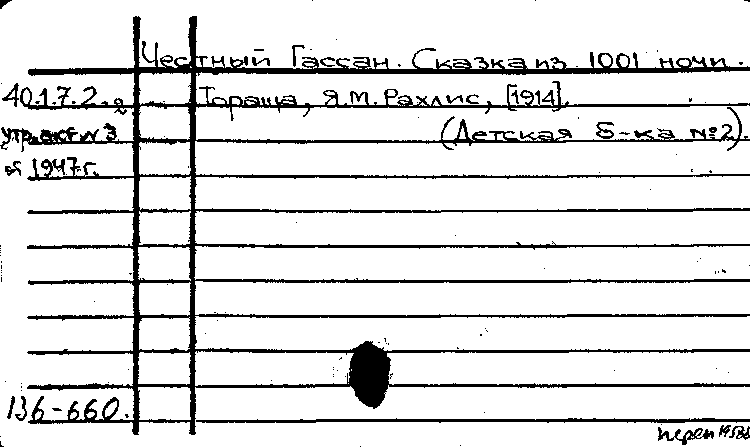 Честный Гассан. Сказка из 1001 ночи.
40.1.7.2.2 Торaща, Я.М. Рахлис, [1914].
утр. акт N 3 (Детская б-ка №2).
от 1947 г.
136-660.
перен